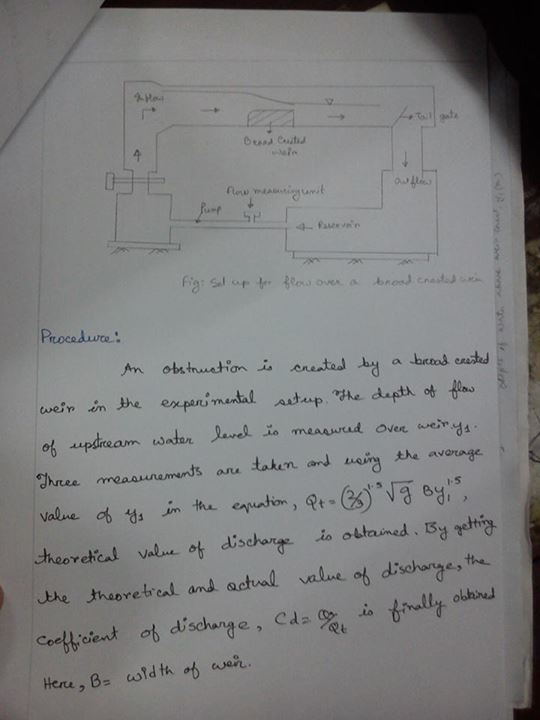 Inflow
Tail gate
Broad Crested
weir
outflow
flow measuring unit
Pump
Reservoir
Fig: Set up for flow over a broad crested weir
Procedure:
An obstruction is created by a broad crested
weir in the experimental setup. The depth of flow
of upstream water level is measured over weir y₁.
Three measurements are taken and using the average
value of y₁ in the equation, Qt = (2/3)^1.5 √g By₁^1.5,
theoretical value of discharge is obtained. By getting
the theoretical and actual value of discharge, the
coefficient of discharge, Cd = Qa/Qt is finally obtained
Here, B = width of weir.